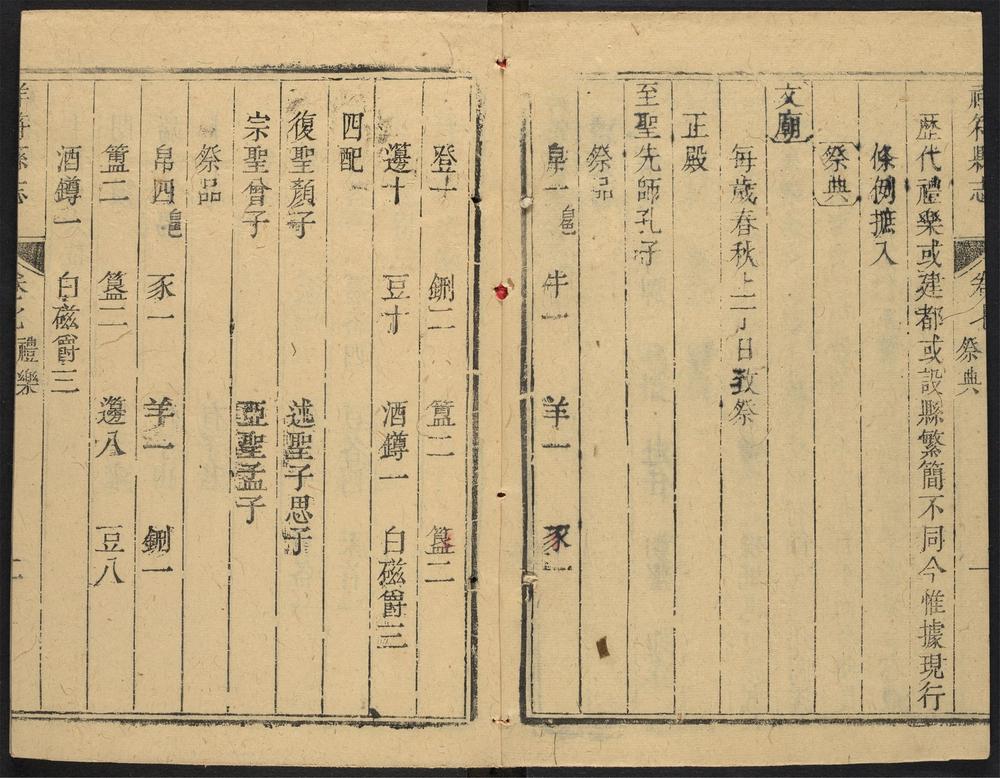 祥符縣志 卷七 祭典 一
歷代禮樂或建都或設縣繁簡不同今惟據現行
條例摭入
祭典
文廟
每歲春秋上二丁日致祭
正殿
至聖先師孔子
祭品
帛一 白色 牛一 羊一 豕一
登一 鉶二 簠二 簋二
籩十 豆十 酒鐏一 白磁爵三
四配
復聖顏子 述聖子思子
宗聖曾子 亞聖孟子
祭品
帛四 白色 豕一 羊一 鉶一
簠二 簋二 籩八 豆八
酒鐏一 白磁爵三
祥符縣志 卷七 禮樂